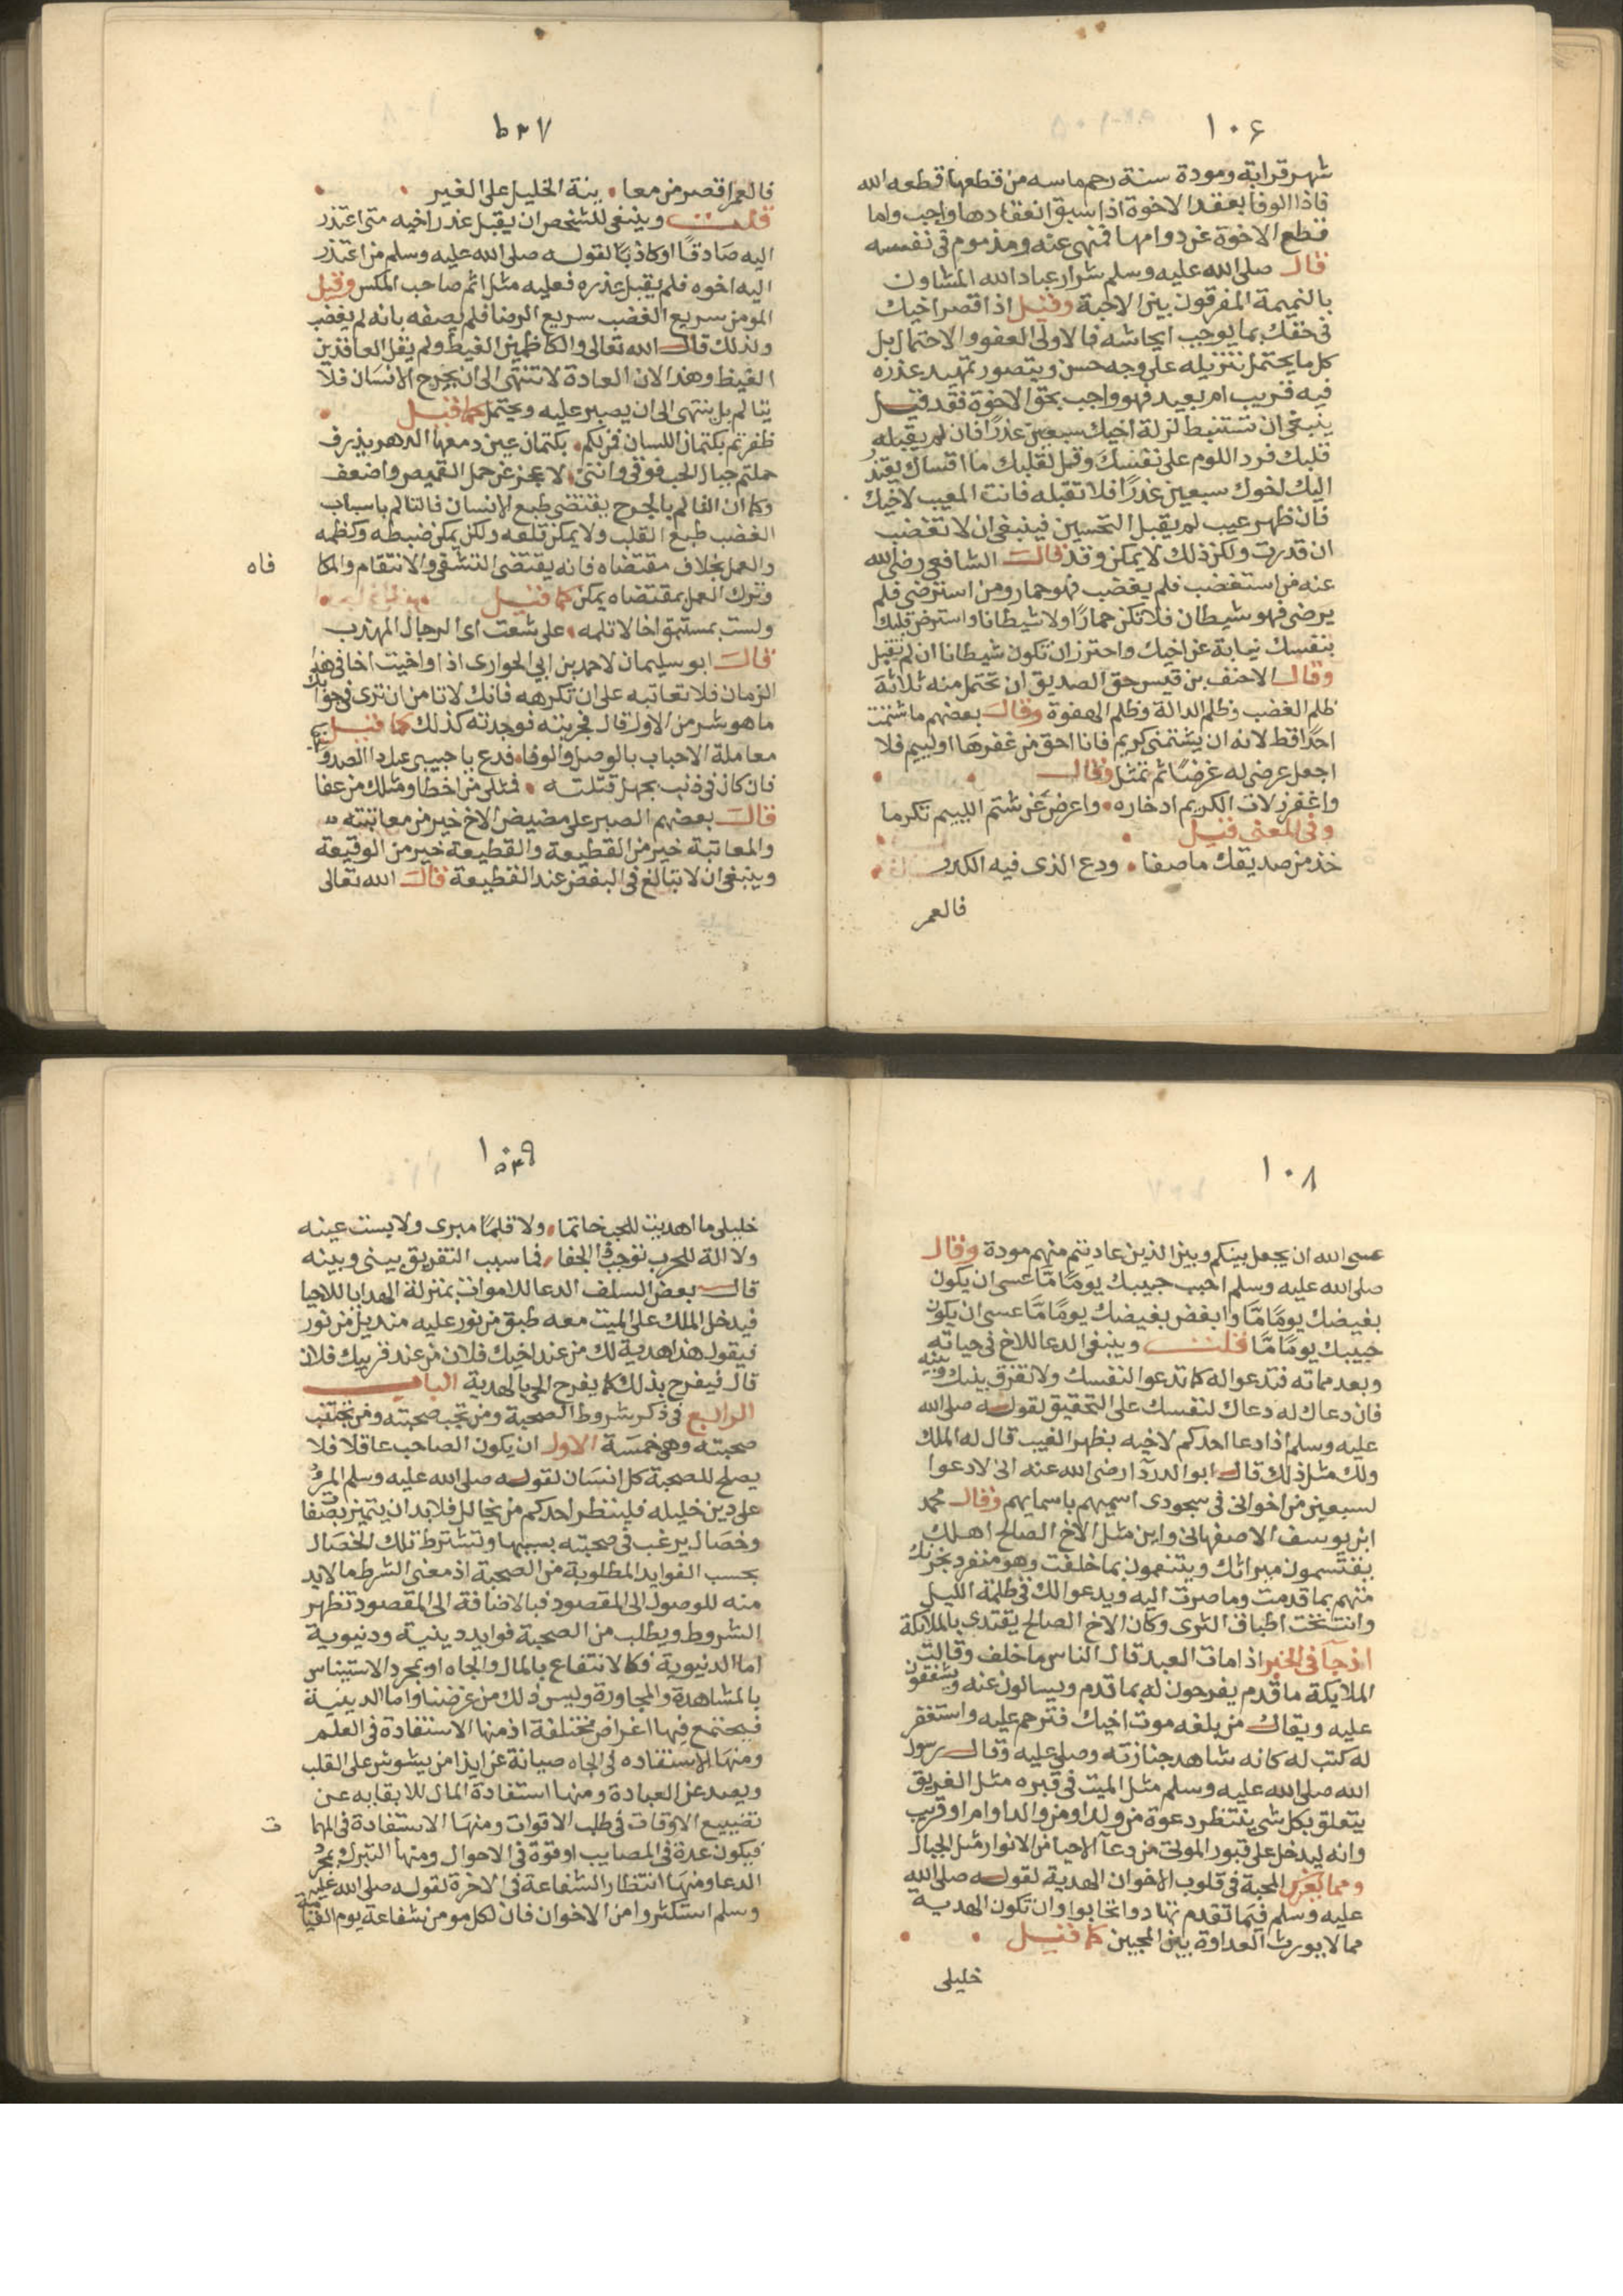 ١٠٦
شهر قرابة ومودة سنة رحم ماسه من قطعها قطعه الله
فاذا الوفا بعقد الاخوة اذا سبق انعقادها واجب واما
قطع الاخوة عن دوامها فمنهى عنه ومذموم فى نفسه
قال صلى الله عليه وسلم شرار عباد الله المشاون
بالنميمة المفرقون بين الاحبة وقيل اذا قصر اخيك
فى حقك بما يوجب ايحاشه فالاولى العفو والاحتمال بل
كل ما يحتمل تنزيله على وجه حسن ويتصور تمهيد عذره
فيه قريب ام بعيد فهو واجب بحق الاخوة فقد قيل
ينبغى ان تستنبط لزلة اخيك سبعين عذرًا فان لم يقبله
قلبك فرد اللوم على نفسك وقل لقلبك ما اقساك يعتذر
اليك اخوك سبعين عذرًا فلا تقبله فانت المعيب لاخيك
فان ظهر عيب لم يقبل التحسين فينبغى ان لا تغضب
ان قدرت ولكن ذلك لا يمكن وقد قال الشافعى رضى الله
عنه من استغضب فلم يغضب فهو حمار ومن استرضى فلم
يرضى فهو شيطان فلا تكن حمارًا ولا شيطانا واسترض قلبك
بنفسك نيابة عن اخيك واحترز ان تكون شيطانا ان لم تقبل
وقال الاحنف بن قيس حق الصديق ان تحتمل منه ثلاثة
ظلم الغضب وظلم الدالة وظلم الهفوة وقال بعضهم ما شتمت
احدًا قط لانه ان يشتمنى كريم فانا احق من غفرها او لييم فلا
اجعل عرضى له غرضًا ثم تمثل وقال
واغفر زلات الكريم ادخاره واعرض عن شتم اللييم تكرما
وفى المعنى قيل
خذ من صديقك ما صفا ودع الذى فيه الكدر
فالعمر
١٠٧
فالعمر اقصر من معا تبة الخليل على الغير
قلت وينبغى للشخص ان يقبل عذر اخيه متى اعتذر
اليه صادقًا او كاذبًا لقوله صلى الله عليه وسلم من اعتذر
اليه اخوه فلم يقبل عذره فعليه مثل اثم صاحب المكس وقيل
المومن سريع الغضب سريع الرضا فلم يصفه بانه لم يغضب
ولذلك قال الله تعالى والكاظمين الغيظ ولم يقل الفاقدين
الغيظ وهذا لان العادة لا تنتهى الى ان يجرح الانسان فلا
يتالم بل ينتهى الى ان يصبر عليه ويحتمل كما قيل
ظفرتم بكتمان اللسان فمن لكم بكتمان عين دمعها الدهر يذرف
حملتم جبال الحب فوقى واننى لاعجز عن حمل القميص واضعف
وكما ان التالم بالجرح يقتضى طبع الانسان فالتالم باسباب
الغضب طبع القلب ولا يمكن قلعه ولكن يمكن ضبطه وكظمه
والعمل بخلاف مقتضاه فانه يقتضى التشفى والانتقام والمكا فاه
وترك العمل بمقتضاه يمكن كما قيل
ولست بمستبق اخا لا تلمه على شعث اى الرجال المهذب
قال ابو سليمان لاحمد بن ابى الحوارى اذا واخيت اخا فى هذا
الزمان فلا تعاتبه على ان تكرهه فانك لا تامن ان ترى فى جوابك
ما هو شر من الاول قال فجربته فوجدته كذلك كما قيل
معاملة الاحباب بالوصل والوفا فدع يا حبيبى عنك ذا الصد
فان كان فى ذنب بجهل قتلته فمثلى من اخطا ومثلك من عفا
قال بعضهم الصبر على مضيض الاخ خير من معاتبته
والمعاتبة خير من القطيعة والقطيعة خير من الوقيعة
وينبغى ان لا تبالغ فى البغض عند القطيعة قال الله تعالى
١٠٨
عسى الله ان يجعل بينكم وبين الذين عاديتم منهم مودة وقال
صلى الله عليه وسلم احبب حبيبك يومًا مّا عسى ان يكون
بغيضك يومًا مّا وابغض بغيضك يومًا مّا عسى ان يكون
حبيبك يومًا مّا قلت وينبغى الدعا للاخ فى حياته
وبعد مماته فتدعوا له كما تدعوا لنفسك ولا تفرق بينك وبينه
فان دعاك له دعاك لنفسك على التحقيق لقوله صلى الله
عليه وسلم اذا دعا احدكم لاخيه بظهر الغيب قال له الملك
ولك مثل ذلك قال ابو الدردآ رضى الله عنه انى لادعوا
لسبعين من اخوانى فى سجودى اسميهم باسمايهم وقال محمد
ابن يوسف الاصفهانى واين مثل الاخ الصالح اهلك
يقتسمون ميراثك ويتنعمون بما خلفت وهو منفرد بحزنك
مهتم بما قدمت وما صرت اليه ويدعوا لك فى ظلمة الليل
وانت تحت اطباق الثرى وكان الاخ الصالح يقتدى بالملايكة
اذ جآ فى الخبر اذا مات العبد قال الناس ما خلف وقالت
الملايكة ما قدم يفرحون له بما قدم ويسالون عنه ويشفقون
عليه ويقال من بلغه موت اخيك فترحم عليه واستغفر
له كتب له كانه شاهد جنازته وصلى عليه وقال رسول
الله صلى الله عليه وسلم مثل الميت فى قبره مثل الغريق
يتعلق بكل شى ينتظر دعوة من ولد او من والد او ام او قريب
وانه ليدخل على قبور الموتى من دعآ الاحيا من الانوار مثل الجبال
ومما يغرس المحبة فى قلوب الاخوان الهدية لقوله صلى الله
عليه وسلم فيما تقدم تهادوا تحابوا وان تكون الهدية
مما لا يورث العداوة بين المحبين كما قيل
خليلى
١٠٩
خليلى ما اهديت للحب خاتما ولا قلمًا مبرى ولا بست عينه
ولا الة للحرب توجب الجفا فما سبب التفريق بينى وبينه
قال بعض السلف الدعا للاموات بمنزلة الهدايا للاحيا
فيدخل الملك على الميت معه طبق من نور عليه منديل من نور
فيقول هذا هدية لك من عند اخيك فلان من عند قريبك فلان
قال فيفرح بذلك كما يفرح الحى بالهدية الباب
الرابع فى ذكر شروط الصحبة ومن تجب صحبته ومن تجتنب
صحبته وهى خمسة الاول ان يكون الصاحب عاقلا فلا
يصلح للصحبة كل انسان لقوله صلى الله عليه وسلم المرؤ
على دين خليله فلينظر احدكم من يخالل فلا بد ان يتميز بصفات
وخصال يرغب فى صحبته بسببها وتشترط تلك الخصال
بحسب الفوايد المطلوبة من الصحبة اذ معنى الشرط ما لا بد
منه للوصول الى المقصود فبالاضافة الى المقصود تظهر
الشروط ويطلب من الصحبة فوايد دينية ودنيوية
اما الدنيوية فكالانتفاع بالمال والجاه او بمجرد الاستيناس
بالمشاهدة والمجاورة وليس ذلك من غرضنا واما الدينية
فيجتمع فيها اغراض مختلفة اذ منها الاستفادة فى العلم
ومنها الاستفاده فى الجاه صيانة عن ايذا من يشوش على القلب
ويصد عن العبادة ومنها استفادة المال للايقابه عن
تضييع الاوقات فى طلب الاقوات ومنها الاستفادة فى المهما ت
فيكون عدة فى المصايب وقوة فى الاحوال ومنها التبرك بمجرد
الدعا ومنها انتظار الشفاعة فى الاخرة لقوله صلى الله عليه
وسلم استكثروا من الاخوان فان لكل مومن شفاعة يوم القيامة